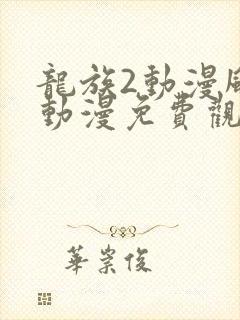 龍族2動漫風
動漫免費觀
華崇俊